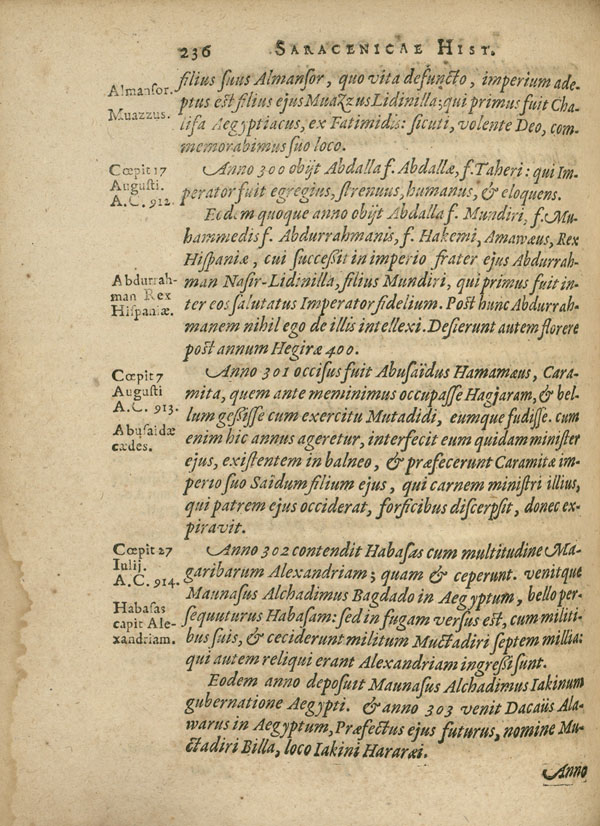 236 SARACENICAE HIST.
Almansor.
Muazzus.
filius suus Almansor, quo vita defuncto, imperium ade-
ptus est filius ejus Muazzus Lidinilla; qui primus fuit Cha-
lifa Aegyptiacus, ex Fatimidis: sicuti, volente Deo, com-
memorabimus suo loco.
Cœpit 17
Augusti.
A.C. 912.
Anno 300 obijt Abdalla f. Abdallæ, f. Taheri: qui Im-
perator fuit egregius, strenuus, humanus, & eloquens.
Eodem quoque anno obijt Abdalla f. Mundiri, f. Mu-
hammedis f. Abdurrahmanis, f. Hakemi, Amawæus, Rex
Hispaniæ, cui successit in imperio frater ejus Abdurrah-
Abdurrah-
man Rex
Hispaniæ.
man Nasir-Lidinilla, filius Mundiri, qui primus fuit in-
ter eos salutatus Imperator fidelium. Post hunc Abdurrah-
manem nihil ego de illis intellexi. Desierunt autem florere
post annum Hegiræ 400.
Cœpit 7
Augusti
A.C. 913.
Abusaidæ
cædes.
Anno 301 occisus fuit Abusaïdus Hamamæus, Cara-
mita, quem ante meminimus occupasse Hagjaram, & bel-
lum gessisse cum exercitu Mutadidi, eumque fudisse. cum
enim hic annus ageretur, interfecit eum quidam minister
ejus, existentem in balneo, & præfecerunt Caramitæ im-
perio suo Saidum filium ejus, qui carnem ministri illius,
qui patrem ejus occiderat, forficibus discerpsit, donec ex-
piravit.
Cœpit 27
Iulij.
A.C. 914.
Habasas
capit Ale-
xandriam.
Anno 302 contendit Habasas cum multitudine Ma-
garibarum Alexandriam; quam & ceperunt. venitque
Maunasus Alchadimus Bagdado in Aegyptum, bello per-
sequuturus Habasam: sed in fugam versus est, cum militi-
bus suis, & ceciderunt militum Muctadiri septem millia:
qui autem reliqui erant Alexandriam ingressi sunt.
Eodem anno deposuit Maunasus Alchadimus Iakinum
gubernatione Aegypti. & anno 303 venit Dacaüs Ala-
warus in Aegyptum, Præfectus ejus futurus, nomine Mu-
ctadiri Billa, loco Iakini Hararæi.
Anno